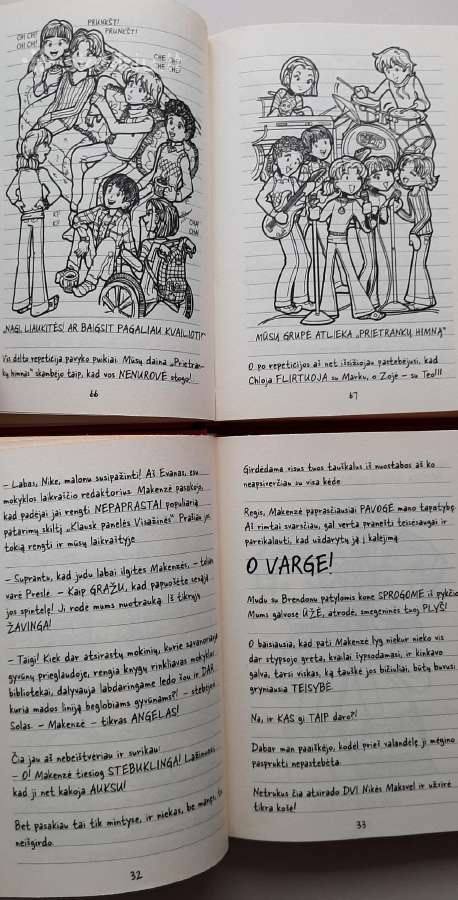 CHI CHI!
CHI CHI!
PRUNKŠT!
PRUNKŠT!
CHE CHE!
CHE CHE!
KI
KI
CHA
CHA!
„NAGI, LIAUKITĖS! AR BAIGSIT PAGALIAU KVAILIOTI?“
Vis dėlto repeticija pavyko puikiai. Mūsų daina „Prietran-
kų himnas“ skambėjo taip, kad vos NENUROVĖ stogo!
66
MŪSŲ GRUPĖ ATLIEKA „PRIETRANKŲ HIMNĄ“
O po repeticijos aš net išsižiojau pastebėjusi, kad
Chloja FLIRTUOJA su Marku, o Zoja – su Teo!!!
67
– Labas, Nike, malonu susipažinti! Aš Evanas, esu
mokyklos laikraščio redaktorius. Makenzė pasakojo,
kad padėjai jai rengti NEPAPRASTAI populiarią
patarimų skiltį „Klausk panelės Visažinės“. Prašau ją
tokią rengti ir mūsų laikraštyje.
– Suprantu, kad judu labai ilgitės Makenzės, – toliau
varė Preslė. – Kaip GRAŽU, kad papuošėte sesąją
jos spintelę! Ji rodė mums nuotrauką. Iš tikrųjų
ŽAVINGA!
– Taigi! Kiek dar atsirastų mokinių, kurie savanoriauja
gyvūnų prieglaudoje, rengia knygų rinkliavas mokyklos
bibliotekai, dalyvauja labdaringame ledo šou ir DAR
kuria mados liniją beglobiams gyvūnams?! – stebėjosi
Solas. – Makenzė – tikras ANGELAS!
Čia jau aš nebeištvėriau ir surikau:
– O! Makenzė tiesiog STEBUKLINGA! Lažinuosi,
kad ji net kakoja AUKSU!
Bet pasakiau tai tik mintyse, ir niekas, be manęs, to
neišgirdo.
32
Girdėdama visus tuos tauškalus iš nuostabos aš ko
neapsiverčiau su visa kėde.
Regis, Makenzė paprasčiausiai PAVOGĖ mano tapatybę.
Aš rimtai svarsčiau, gal verta pranešti teisėsaugai ir
pareikalauti, kad uždarytų ją į kalėjimą.
O VARGE!
Mudu su Brendonu patylomis kone SPROGOME iš pykčio.
Mums galvose ŪŽĖ, atrodė, smegeninės tuoj PLYŠ!
O baisiausia, kad pati Makenzė lyg niekur nieko vis
dar stypsojo greta, kvailai šypsodamasi, ir kinkavo
galva, tarsi viskas, ką tauškė jos bičiuliai, būtų buvusi
gryniausia TEISYBĖ.
Na, ir KAS gi TAIP daro?!
Dabar man paaiškėjo, kodėl prieš valandėlę ji mėgino
pasprukti nepastebėta.
Netrukus čia atsirado DVI Nikės Maksvel ir užvirė
tikra košė!
33